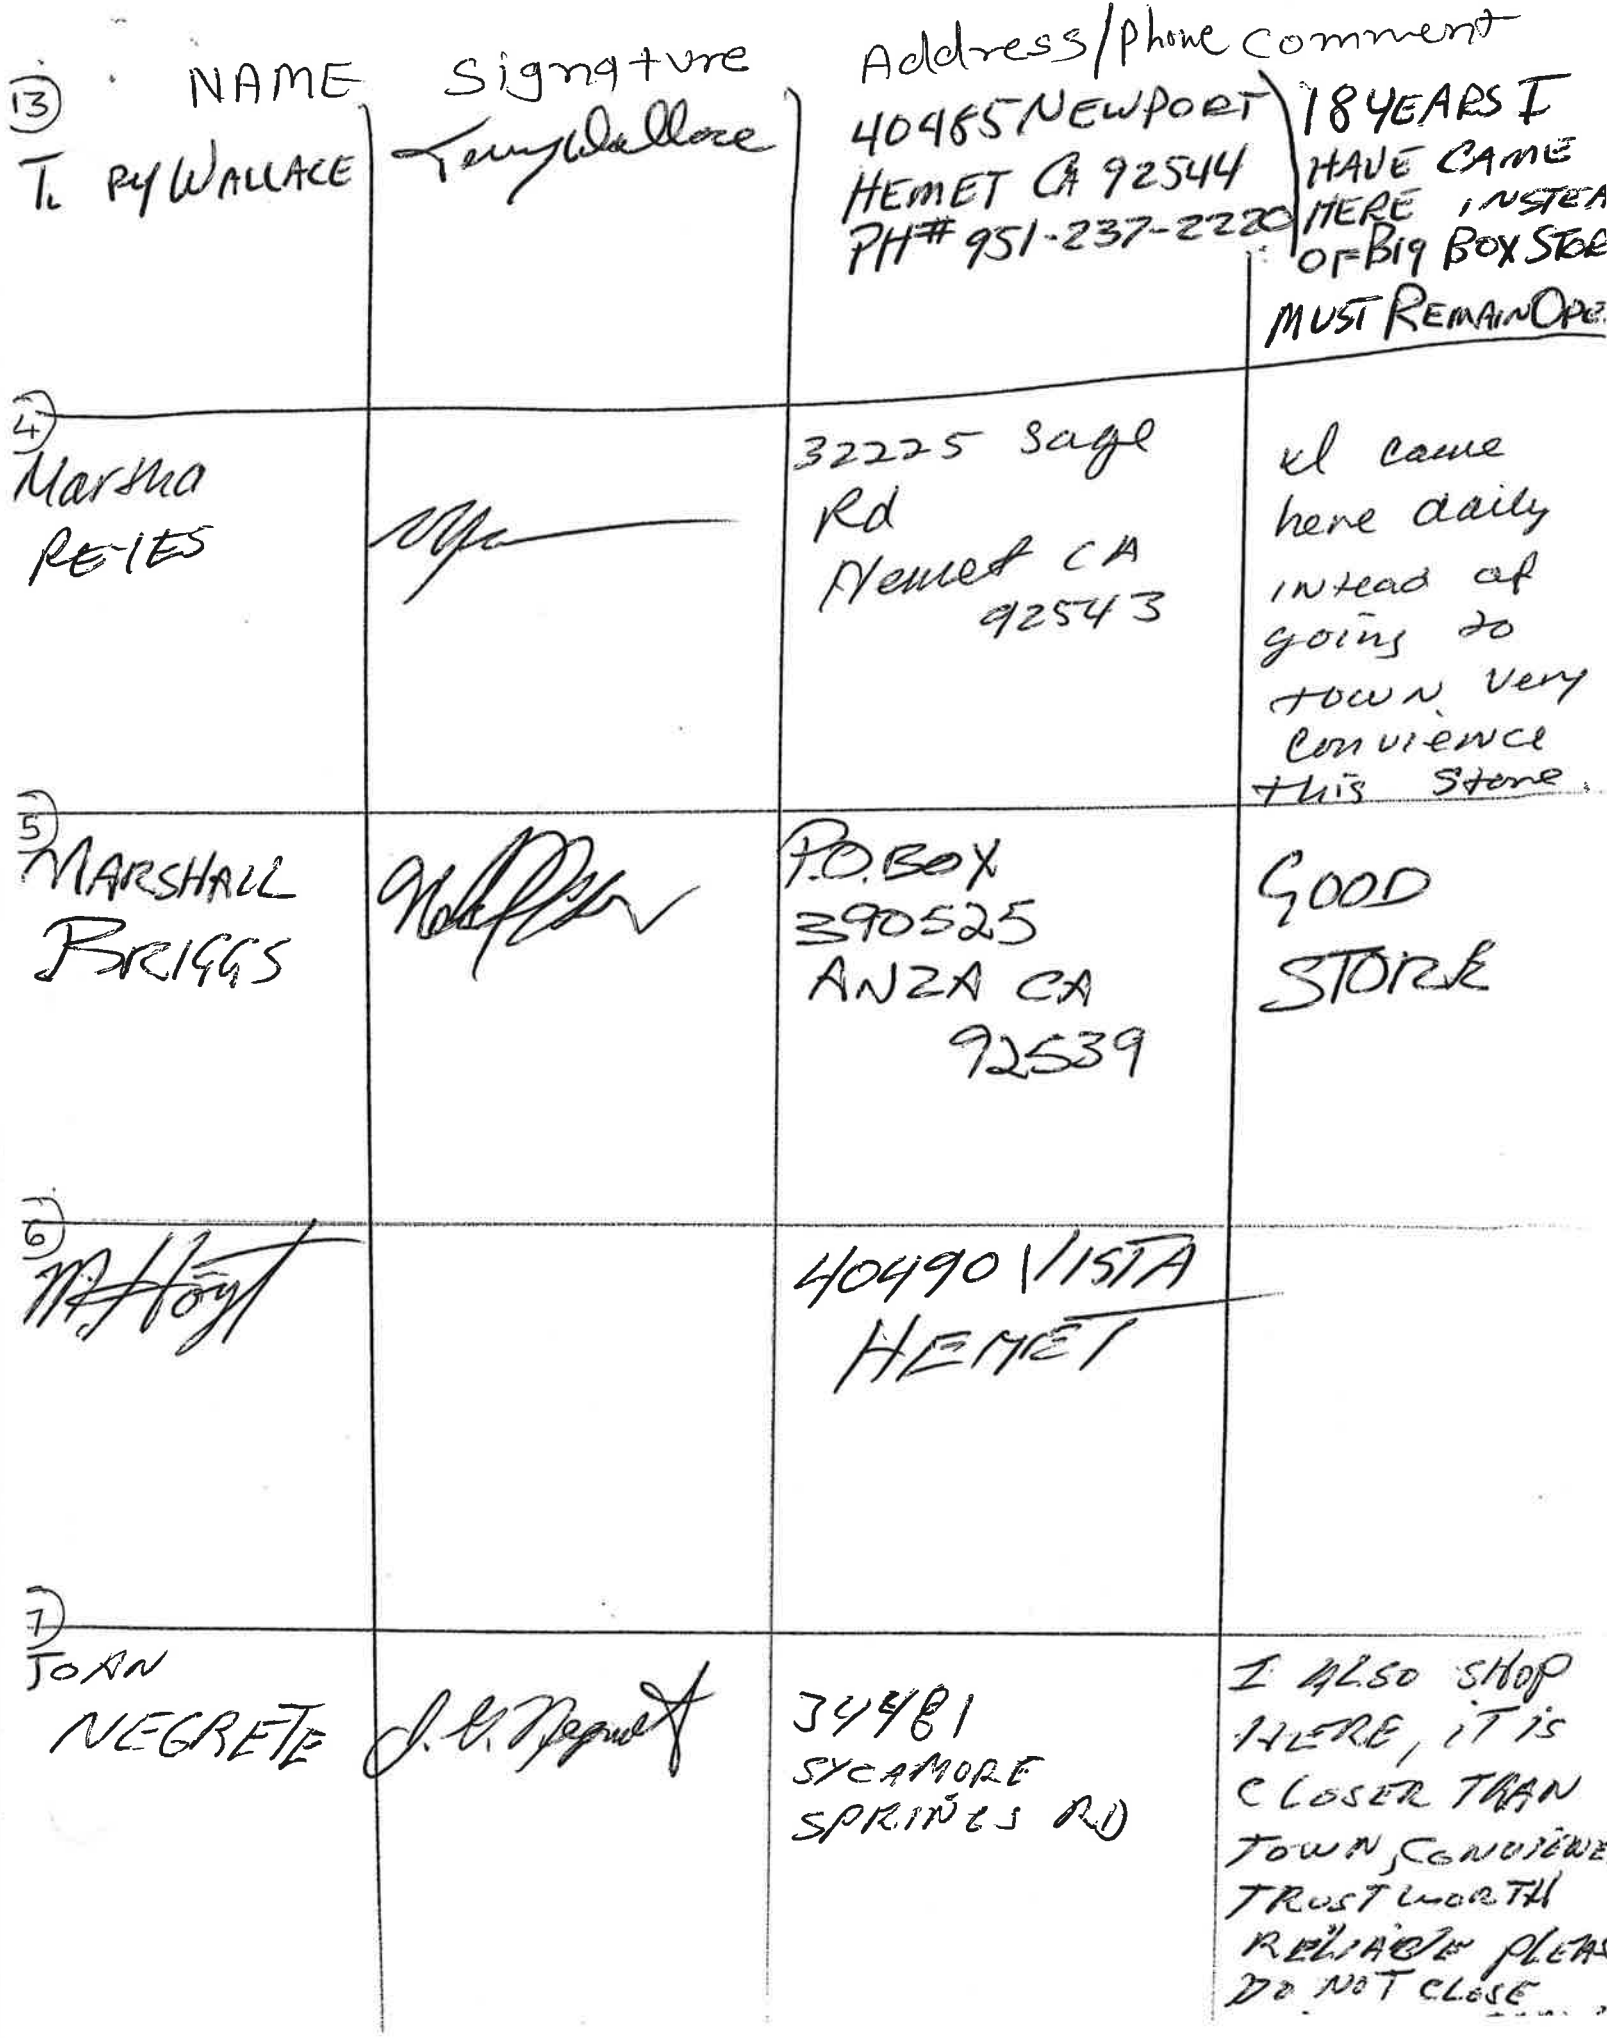 NAME Signature Address/Phone comment
13
T. RY WALLACE Terry Wallace 40485 NEWPORT
HEMET CA 92544
PH# 951-237-2220
18 YEARS I
HAVE CAME
HERE INSTEA
OF BIG BOX STOR
MUST REMAIN OPE
4
Marsha
REYES
32225 Sage
Rd
Hemet CA
92543
I came
here daily
intead of
going to
town. Very
convience
this store.
5
MARSHALL
BRIGGS
P.O. BOX
390525
ANZA CA
92539
GOOD
STORE
6
M. Hoyt
40490 VISTA
HEMET
7
JOAN
NEGRETE
J. G. Negrete
34481
SYCAMORE
SPRINGS RD
I ALSO SHOP
HERE, IT IS
CLOSER THAN
TOWN, CONVIENE
TRUST WORTH
RELIABLE PLEAS
DO NOT CLOSE